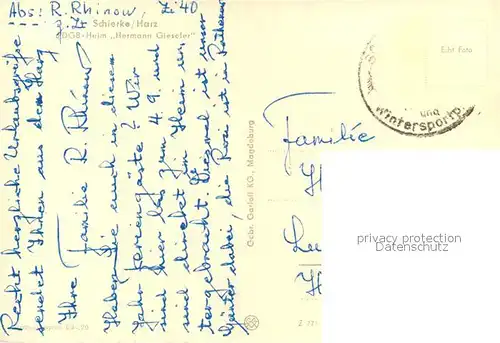 Abs: R. Rhinow, Zi 40
z. Zt Schierke/Harz
FDGB-Heim „Hermann Gieseler"
Recht herzliche Urlaubsgrüße
sendet Ihnen aus dem Harz
Ihre Familie R. Rhinow
Haben Sie auch in diesem
Jahr Feriengäste? Wir
sind hier bis zum 4.9. und
sind direkt im Heim un-
tergebracht. Diesmal ist unser
Günter dabei, die Rosi ist in
Gebr. Garloff KG., Magdeburg
Echt Foto
und
Wintersport
Familie
H
Le
H
privacy protection
Datenschutz